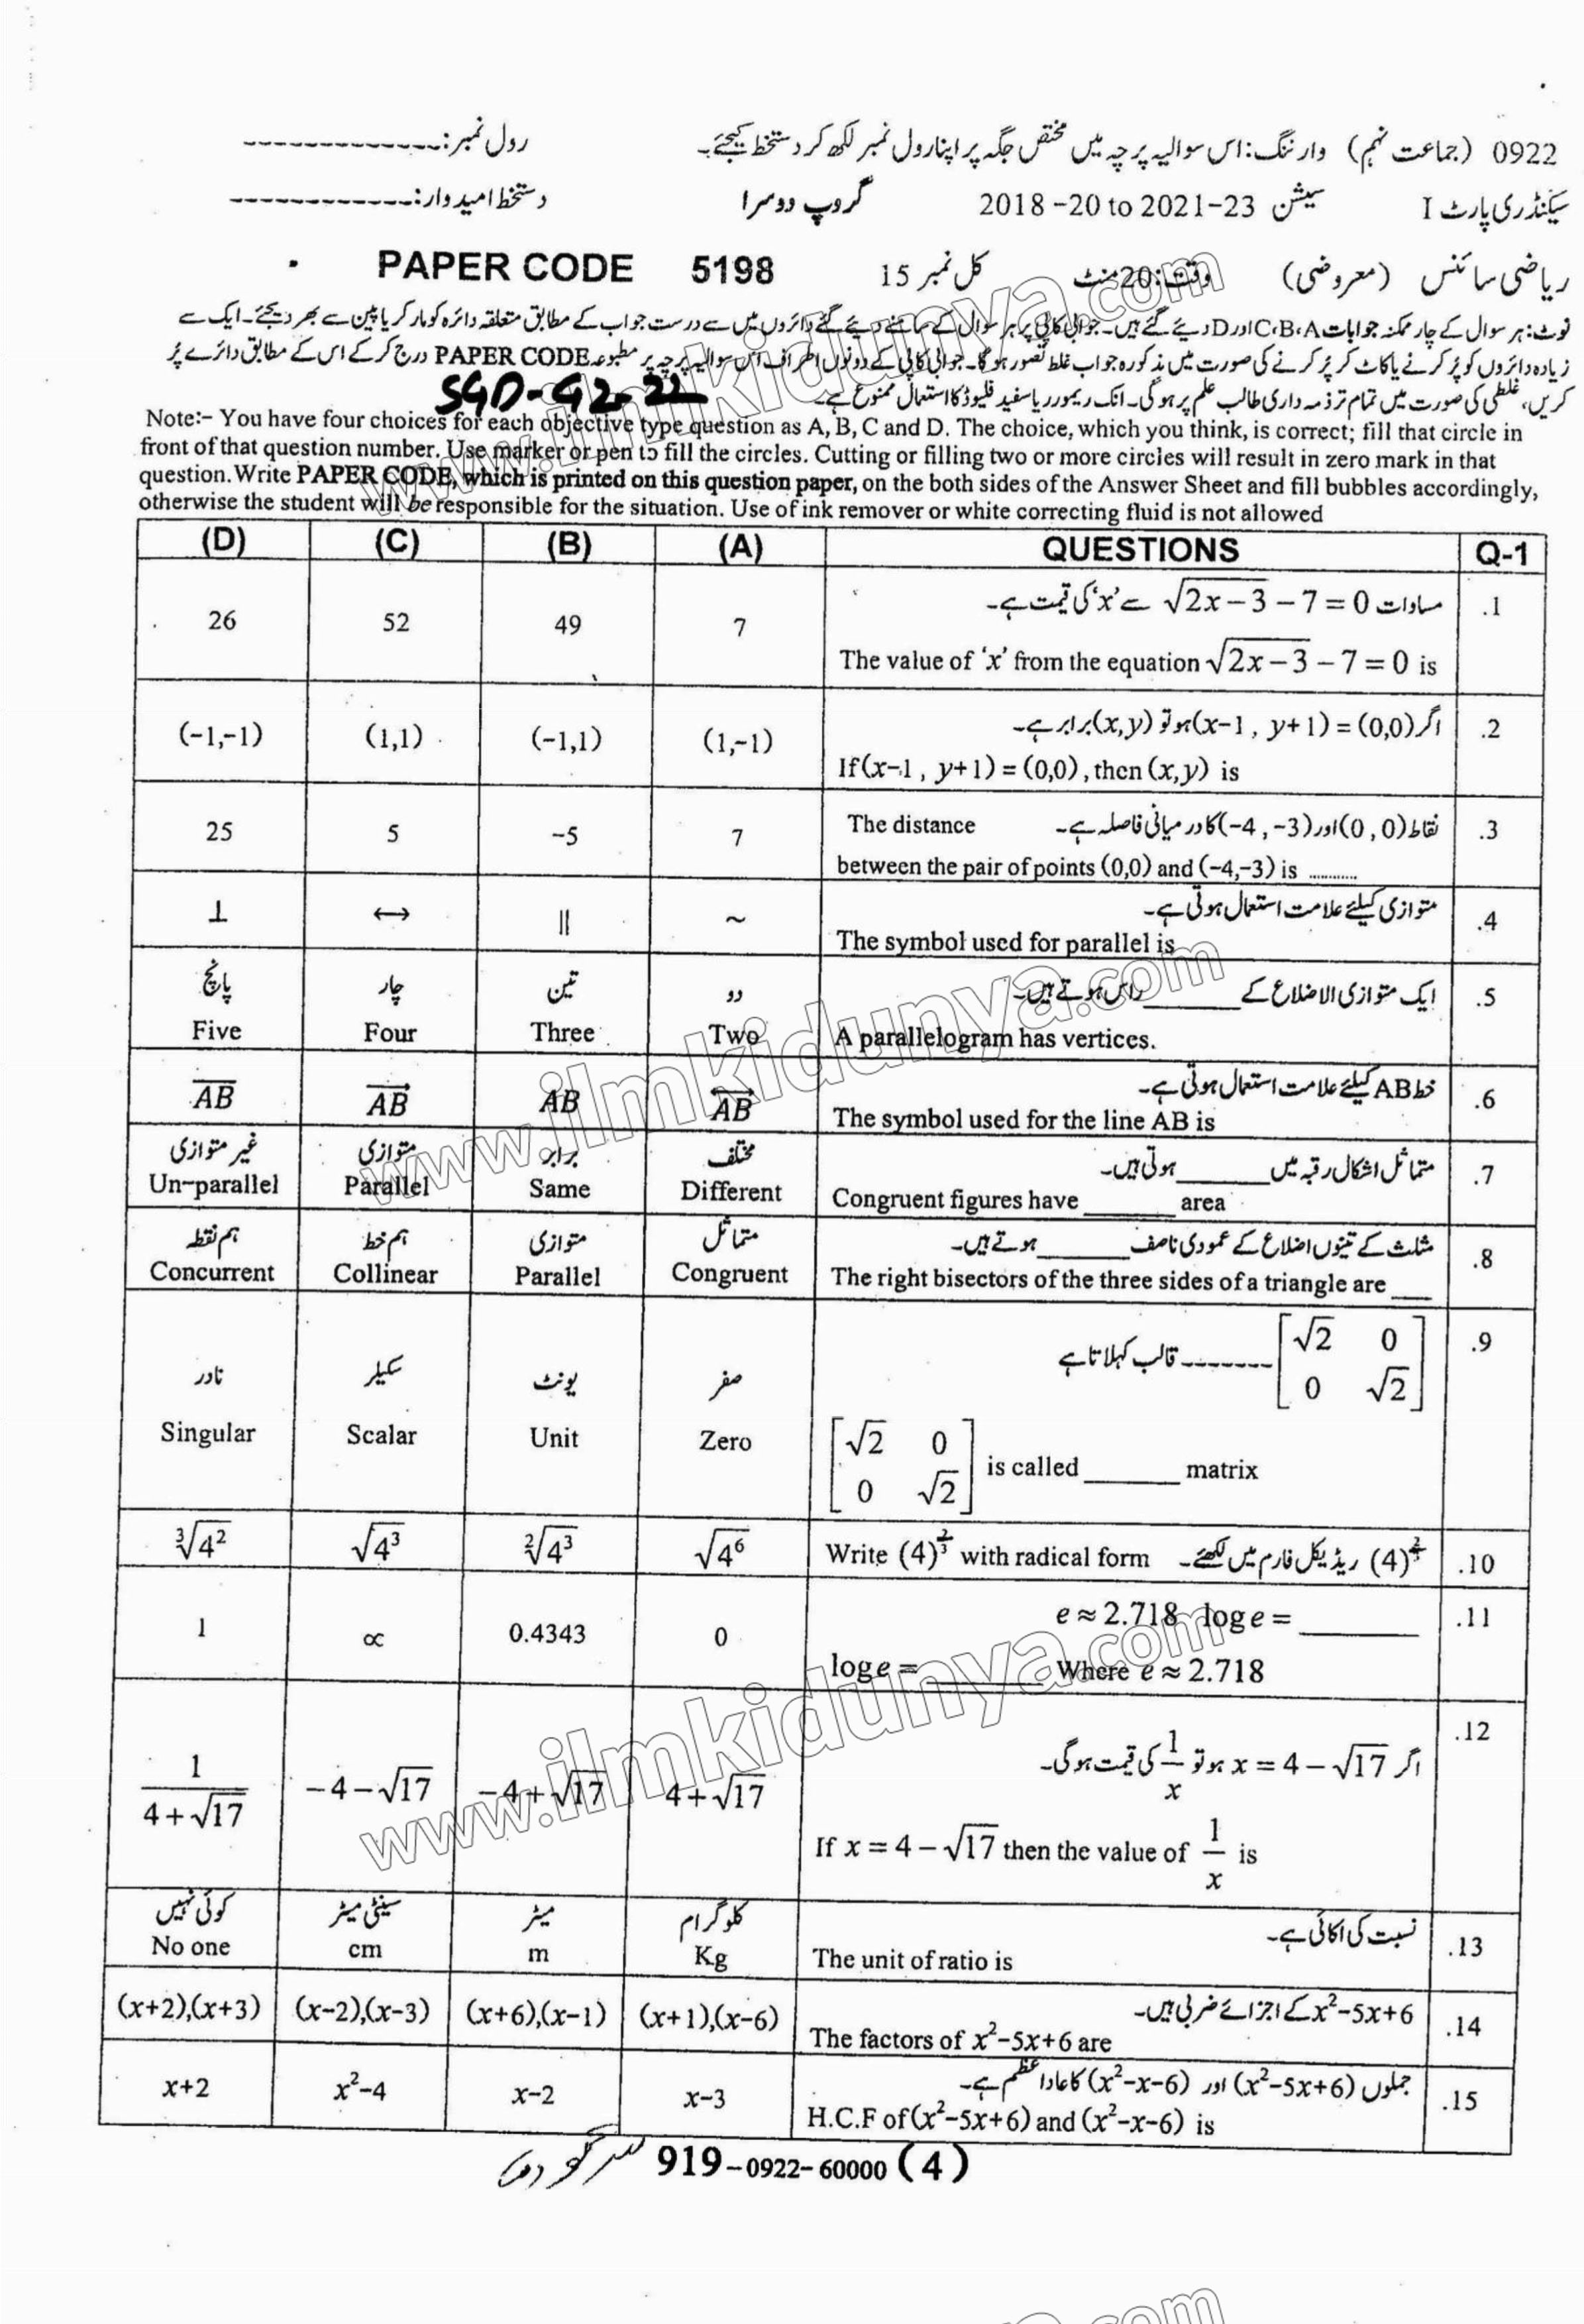 0922 (جماعت نہم) وارننگ: اس سوالیہ پرچہ میں مختص جگہ پر اپنا رول نمبر لکھ کر دستخط کیجئے۔ رول نمبر: -------------
سیکنڈری پارٹ I سیشن 2018-20 to 2021-23 گروپ دوسرا دستخط امیدوار: -------------
ریاضی سائنس (معروضی) وقت: 20 منٹ کل نمبر 15 PAPER CODE 5198
نوٹ: ہر سوال کے چار ممکنہ جوابات C،B،A اور D دیئے گئے ہیں۔ جوابی کاپی پر ہر سوال کے سامنے دیئے گئے دائروں میں سے درست جواب کے مطابق متعلقہ دائرہ کو مارکر یا پین سے بھر دیجئے۔ ایک سے
زیادہ دائروں کو پُر کرنے یا کاٹ کر پُر کرنے کی صورت میں مذکورہ جواب غلط تصور ہو گا۔ جوابی کاپی کے دونوں اطراف اس سوالیہ پرچہ پر مطبوعہ PAPER CODE درج کر کے اس کے مطابق دائرے پُر
کریں، غلطی کی صورت میں تمام تر ذمہ داری طالب علم پر ہوگی۔ انک ریموور یا سفید فلیوڈ کا استعمال ممنوع ہے۔
SGD-G2-22
Note:- You have four choices for each objective type question as A, B, C and D. The choice, which you think, is correct; fill that circle in
front of that question number. Use marker or pen to fill the circles. Cutting or filling two or more circles will result in zero mark in that
question. Write PAPER CODE, which is printed on this question paper, on the both sides of the Answer Sheet and fill bubbles accordingly,
otherwise the student will be responsible for the situation. Use of ink remover or white correcting fluid is not allowed
(D) (C) (B) (A) QUESTIONS Q-1
مساوات √(2x−3) − 7 = 0 سے 'x' کی قیمت ہے۔ .1
26 52 49 7
The value of 'x' from the equation √(2x−3) − 7 = 0 is
اگر (x−1 , y+1) = (0,0) ہو تو (x,y) برابر ہے۔ .2
(−1,−1) (1,1) (−1,1) (1,−1)
If (x−1 , y+1) = (0,0), then (x,y) is
The distance نقاط (0 , 0) اور (−4 , −3) کا درمیانی فاصلہ ہے۔ .3
25 5 −5 7
between the pair of points (0,0) and (−4,−3) is ...........
متوازی کیلئے علامت استعمال ہوتی ہے۔ .4
⊥ ↔ || ~
The symbol used for parallel is
ایک متوازی الاضلاع کے ______ راس ہوتے ہیں۔ .5
پانچ چار تین دو
Five Four Three Two A parallelogram has vertices.
خط AB کیلئے علامت استعمال ہوتی ہے۔ .6
A̅B̅ AB→ AB AB↔
The symbol used for the line AB is
متماثل اشکال رقبہ میں ______ ہوتی ہیں۔ .7
غیر متوازی متوازی برابر مختلف
Un-parallel Parallel Same Different Congruent figures have ______ area
مثلث کے تینوں اضلاع کے عمودی ناصف ______ ہوتے ہیں۔ .8
ہم نقطہ ہم خط متوازی متماثل
Concurrent Collinear Parallel Congruent The right bisectors of the three sides of a triangle are ___
[√2 0; 0 √2] ------- قالب کہلاتا ہے .9
نادر سکیلر یونٹ صفر
Singular Scalar Unit Zero [√2 0; 0 √2] is called ______ matrix
∛4² √4³ ²√4³ √4⁶ Write (4)^(2/3) with radical form (4)^(2/3) ریڈیکل فارم میں لکھئے۔ .10
e ≈ 2.718 log e = ________ .11
1 ∝ 0.4343 0
log e = ________ Where e ≈ 2.718
اگر x = 4 − √17 ہو تو 1/x کی قیمت ہوگی۔ .12
1/(4 + √17) −4 − √17 −4 + √17 4 + √17
If x = 4 − √17 then the value of 1/x is
نسبت کی اکائی ہے۔ .13
کوئی نہیں سینٹی میٹر میٹر کلوگرام
No one cm m Kg The unit of ratio is
x²−5x+6 کے اجزائے ضربی ہیں۔ .14
(x+2),(x+3) (x−2),(x−3) (x+6),(x−1) (x+1),(x−6)
The factors of x²−5x+6 are
جملوں (x²−5x+6) اور (x²−x−6) کا عاد اعظم ہے۔ .15
x+2 x²−4 x−2 x−3
H.C.F of (x²−5x+6) and (x²−x−6) is
919-0922-60000 (4) سرگودھا
www.ilmkidunya.com
www.ilmkidunya.com
www.ilmkidunya.com